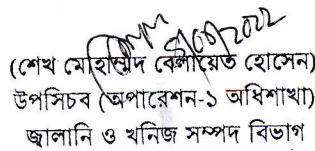 (শেখ মোহাম্মদ বেলায়েত হোসেন)
উপসচিব (অপারেশন-১ অধিশাখা)
জ্বালানি ও খনিজ সম্পদ বিভাগ